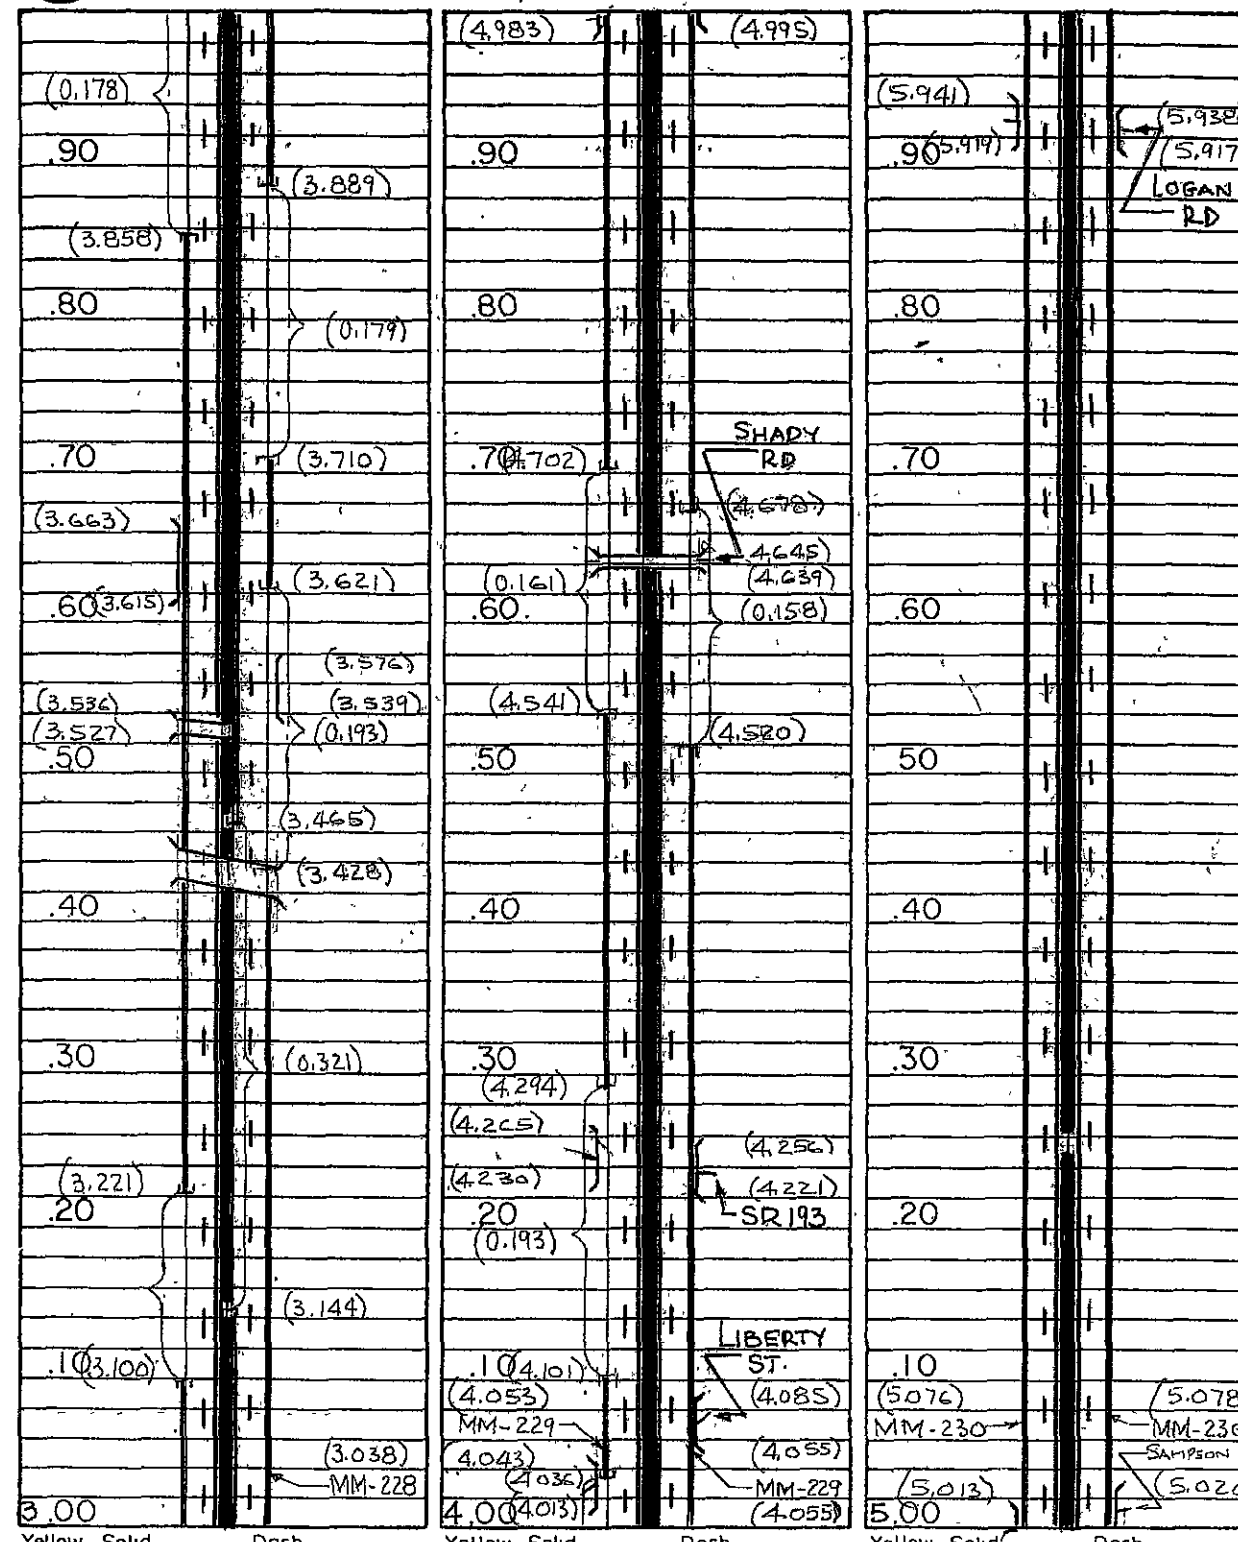 (0.178)
.90
(3.889)
(3.858)
.80
(0.179)
.70
(3.710)
(3.663)
(3.621)
.60
(3.615)
(3.576)
(3.536)
(3.539)
(3.527)
(0.193)
.50
(3.465)
(3.428)
.40
.30
(0.321)
(3.221)
.20
(3.144)
.10
(3.100)
(3.038)
MM-228
3.00
(4.983)
(4.995)
.90
.80
SHADY
RD
.70
(4.702)
(4.678)
4.645)
(0.161)
(4.639)
.60
(0.158)
(4.541)
(4.520)
.50
.40
.30
(4.294)
(4.265)
(4.256)
(4.230)
(4.221)
.20
SR 193
(0.193)
LIBERTY
ST.
.10
(4.101)
(4.053)
(4.085)
MM-229
(4.043)
(4.055)
(4.036)
MM-229
4.00
(4.013)
(4.055)
(5.941)
(5.938
.90
(5.919)
(5.917
LOGAN
RD
.80
.70
.60
50
.40
.30
.20
.10
(5.076)
(5.078
MM-230
MM-230
SAMPSON
(5.013)
(5.026
5.00
Yellow Solid
Dash
Yellow Solid
Dash
Yellow Solid
Dash